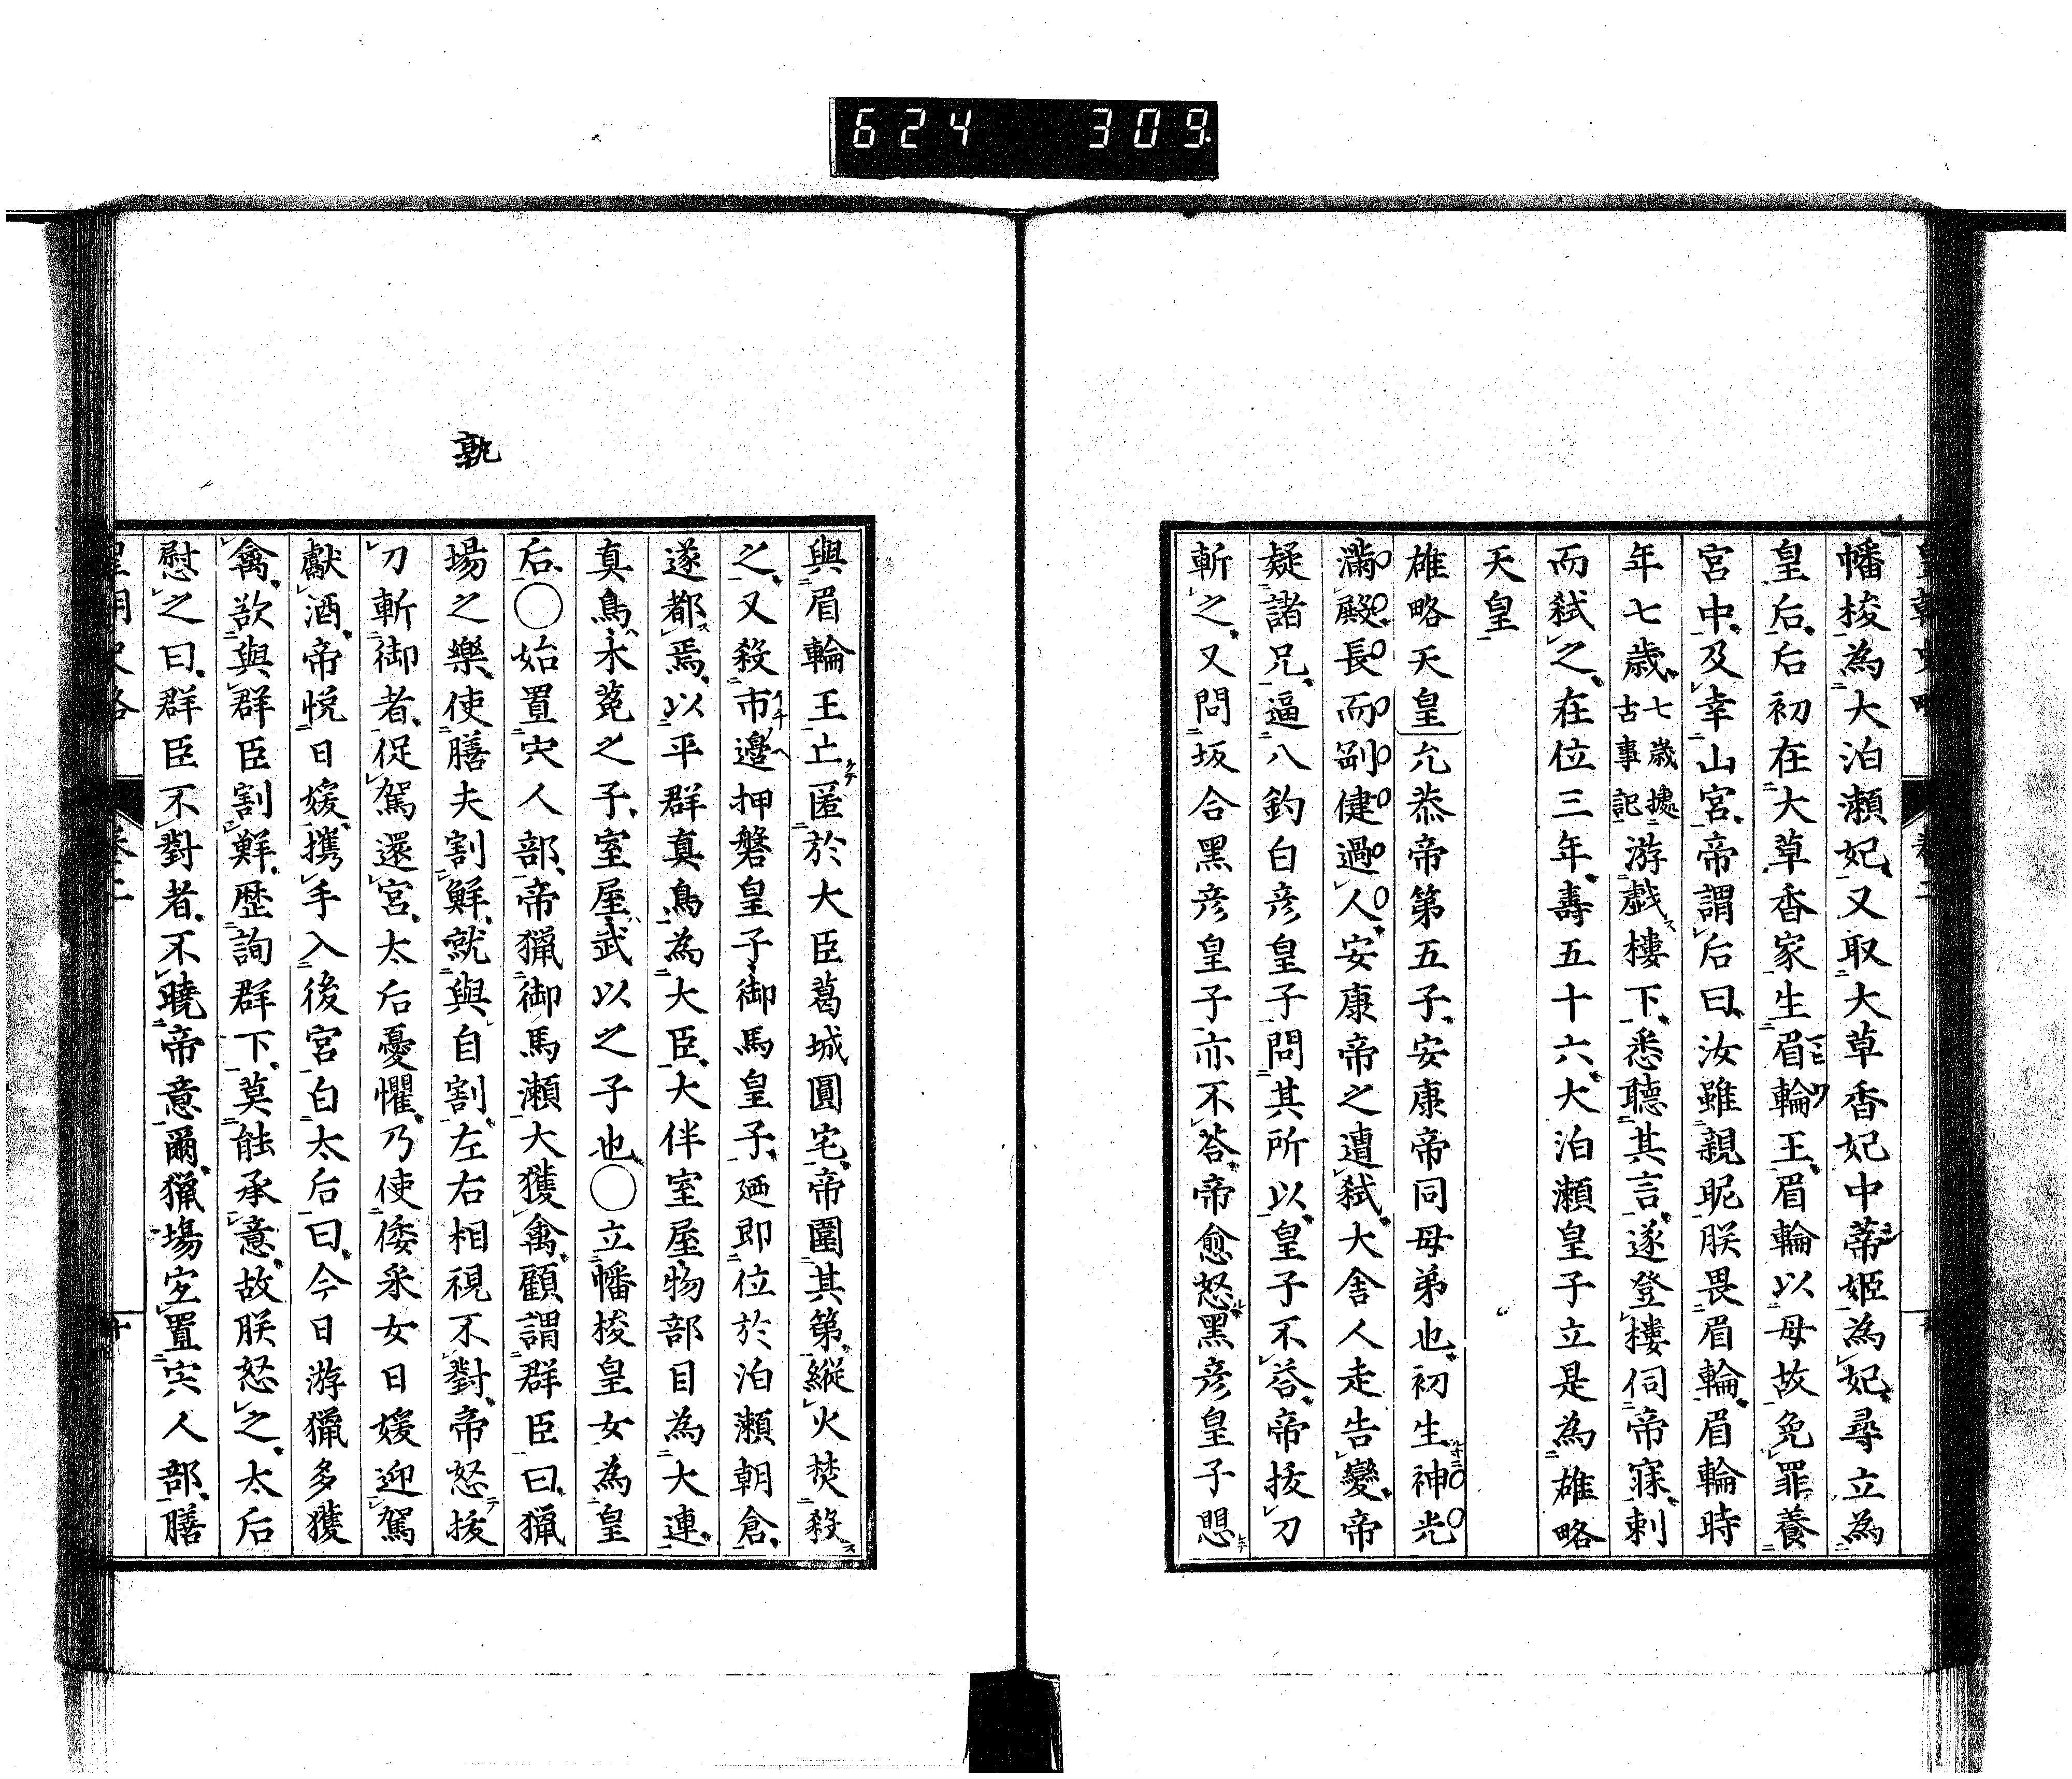 624 309
皇朝史略 卷二
幡梭為大泊瀬妃又取大草香妃中蒂姬為妃尋立為
皇后后初在大草香家生眉輪王眉輪以母故免罪養
宮中及幸山宮帝謂后曰汝雖親昵朕畏眉輪眉輪時
年七歲七歲據古事記游戲樓下悉聽其言遂登樓伺帝寐刺
而弑之在位三年壽五十六大泊瀬皇子立是為雄略
天皇
雄略天皇允恭帝第五子安康帝同母弟也初生神光
滿殿長而剛健過人安康帝之遭弑大舍人走告變帝
疑諸兄逼八釣白彦皇子問其所以皇子不荅帝拔刀
斬之又問坂合黑彦皇子亦不荅帝愈怒黑彦皇子懼
與眉輪王亡匿於大臣葛城圓宅帝圍其第縱火焚殺
之又殺市邊押磐皇子御馬皇子廼即位於泊瀬朝倉
遂都焉以平群真鳥為大臣大伴室屋物部目為大連
真鳥木菟之子室屋武以之子也○立幡梭皇女為皇
后○始置宍人部帝獵御馬瀬大獲禽顧謂群臣曰獵
場之樂使膳夫割鮮就與自割左右相視不對帝怒拔
刀斬御者促駕還宮太后憂懼乃使倭釆女日媛迎駕
獻酒帝悅日媛攜手入後宮白太后曰今日游獵多獲
禽欲與群臣割鮮歷詢群下莫能承意故朕怒之太后
慰之曰群臣不對者不曉帝意爾獵場宜置宍人部膳
皇朝史略 卷二 十
孰